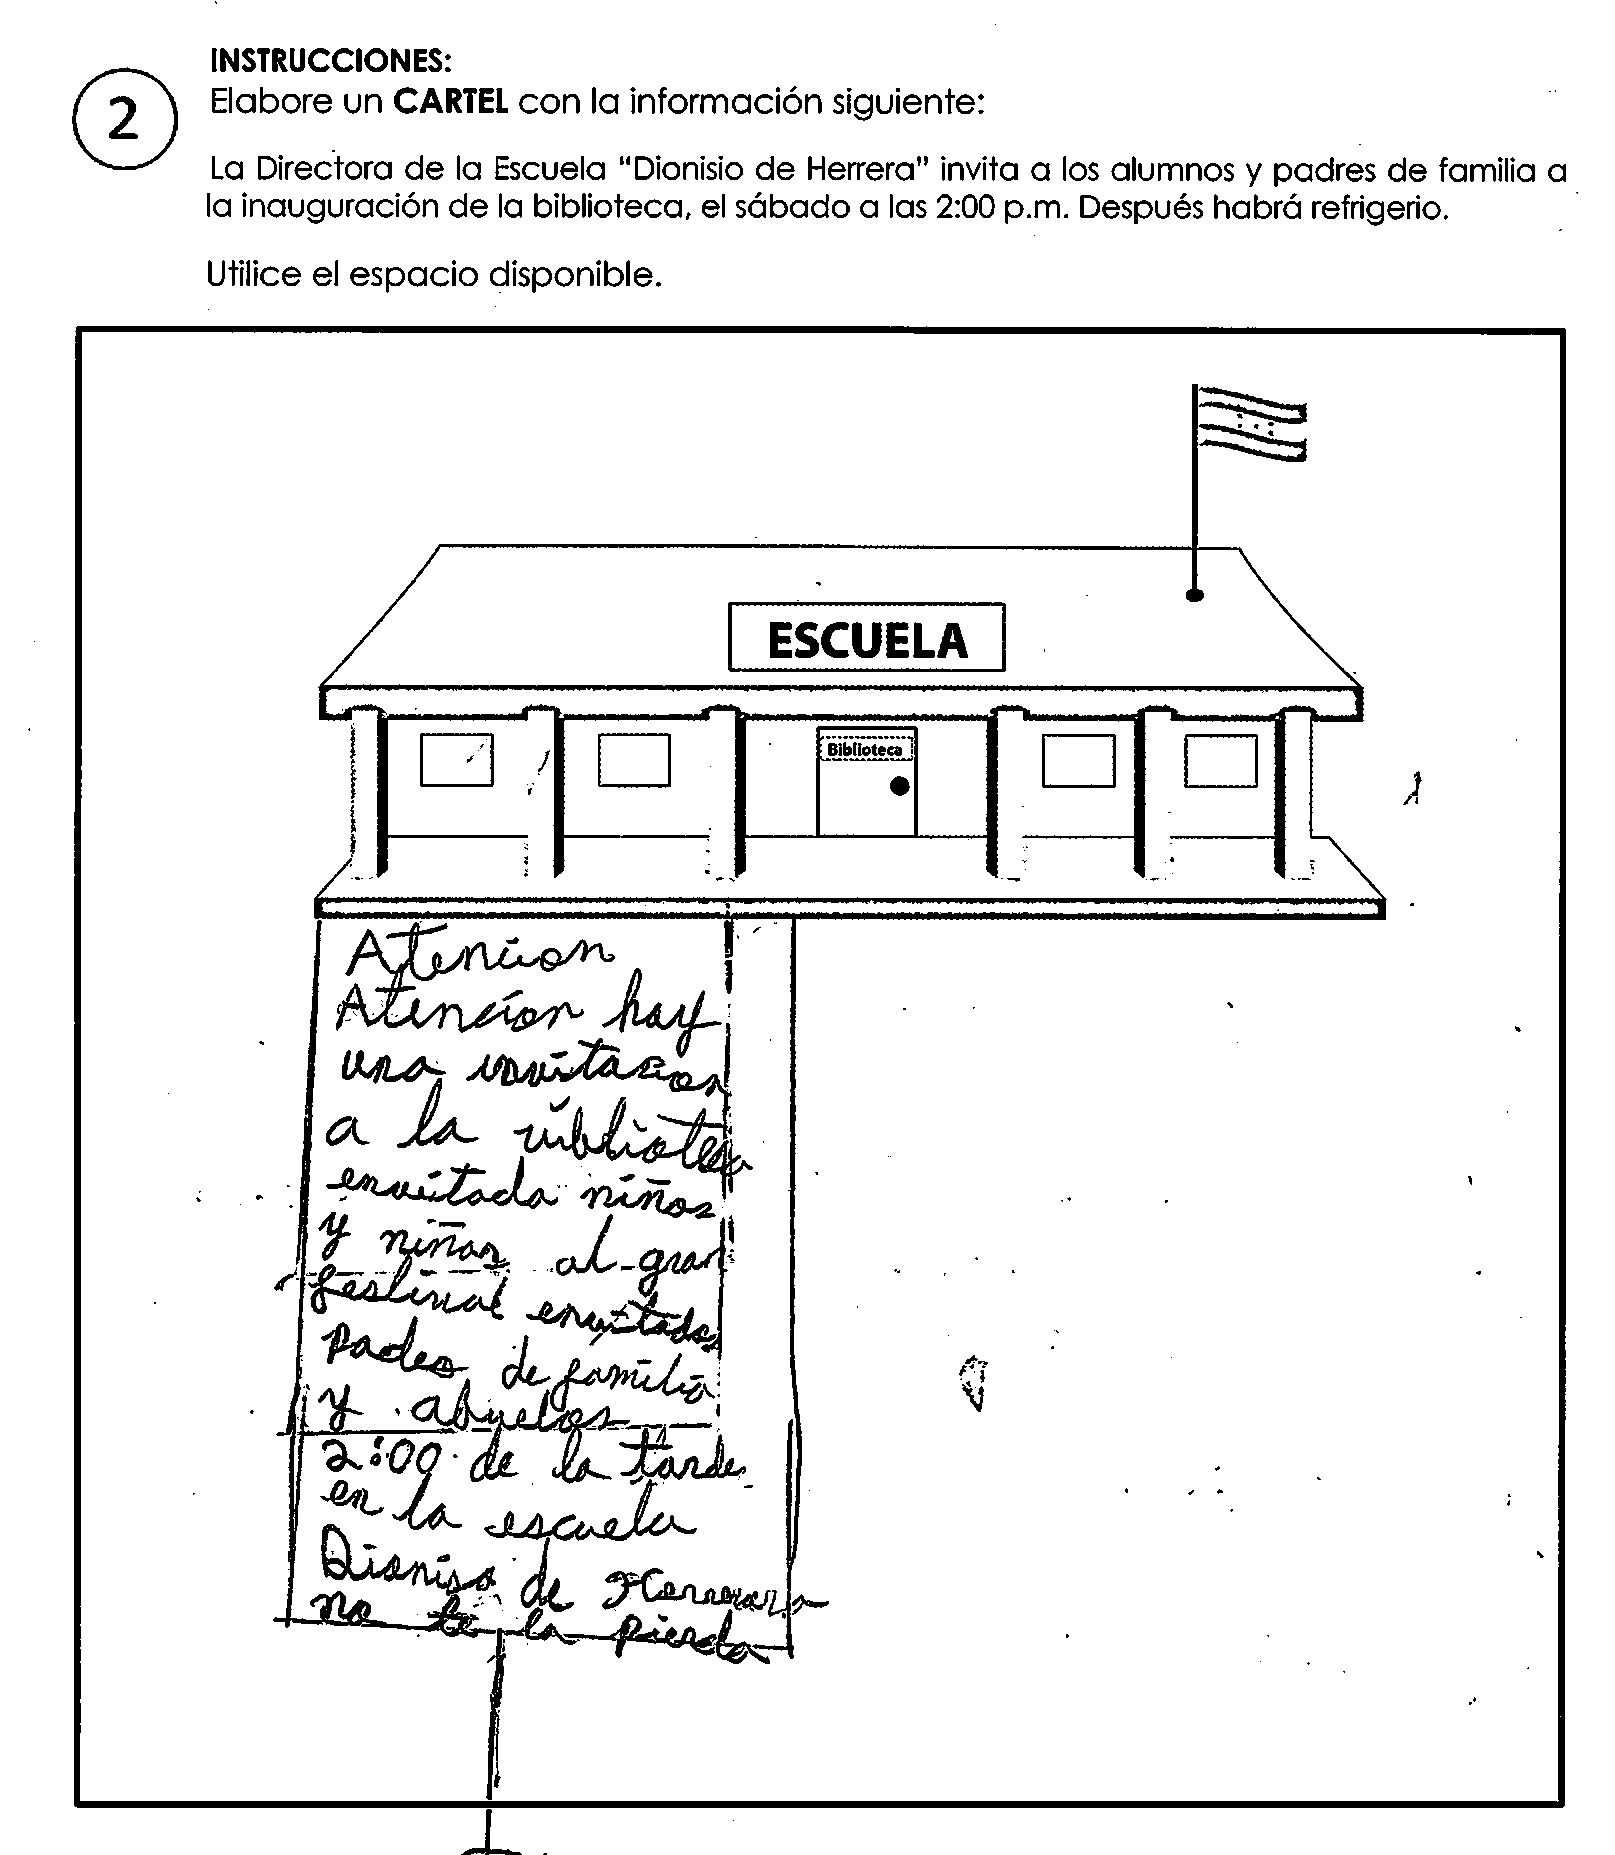 INSTRUCCIONES:
2
Elabore un CARTEL con la información siguiente:
La Directora de la Escuela “Dionisio de Herrera” invita a los alumnos y padres de familia a
la inauguración de la biblioteca, el sábado a las 2:00 p.m. Después habrá refrigerio.
Utilice el espacio disponible.
ESCUELA
Biblioteca
Atencion
Atencíon hay
una invitacion
a la viblioteca
envitada niños
y niñas al gran
festival envitados
pades de familia
y abuelos
2:00 de la tarde
en la escuela
Dioniso de
no te la pierda